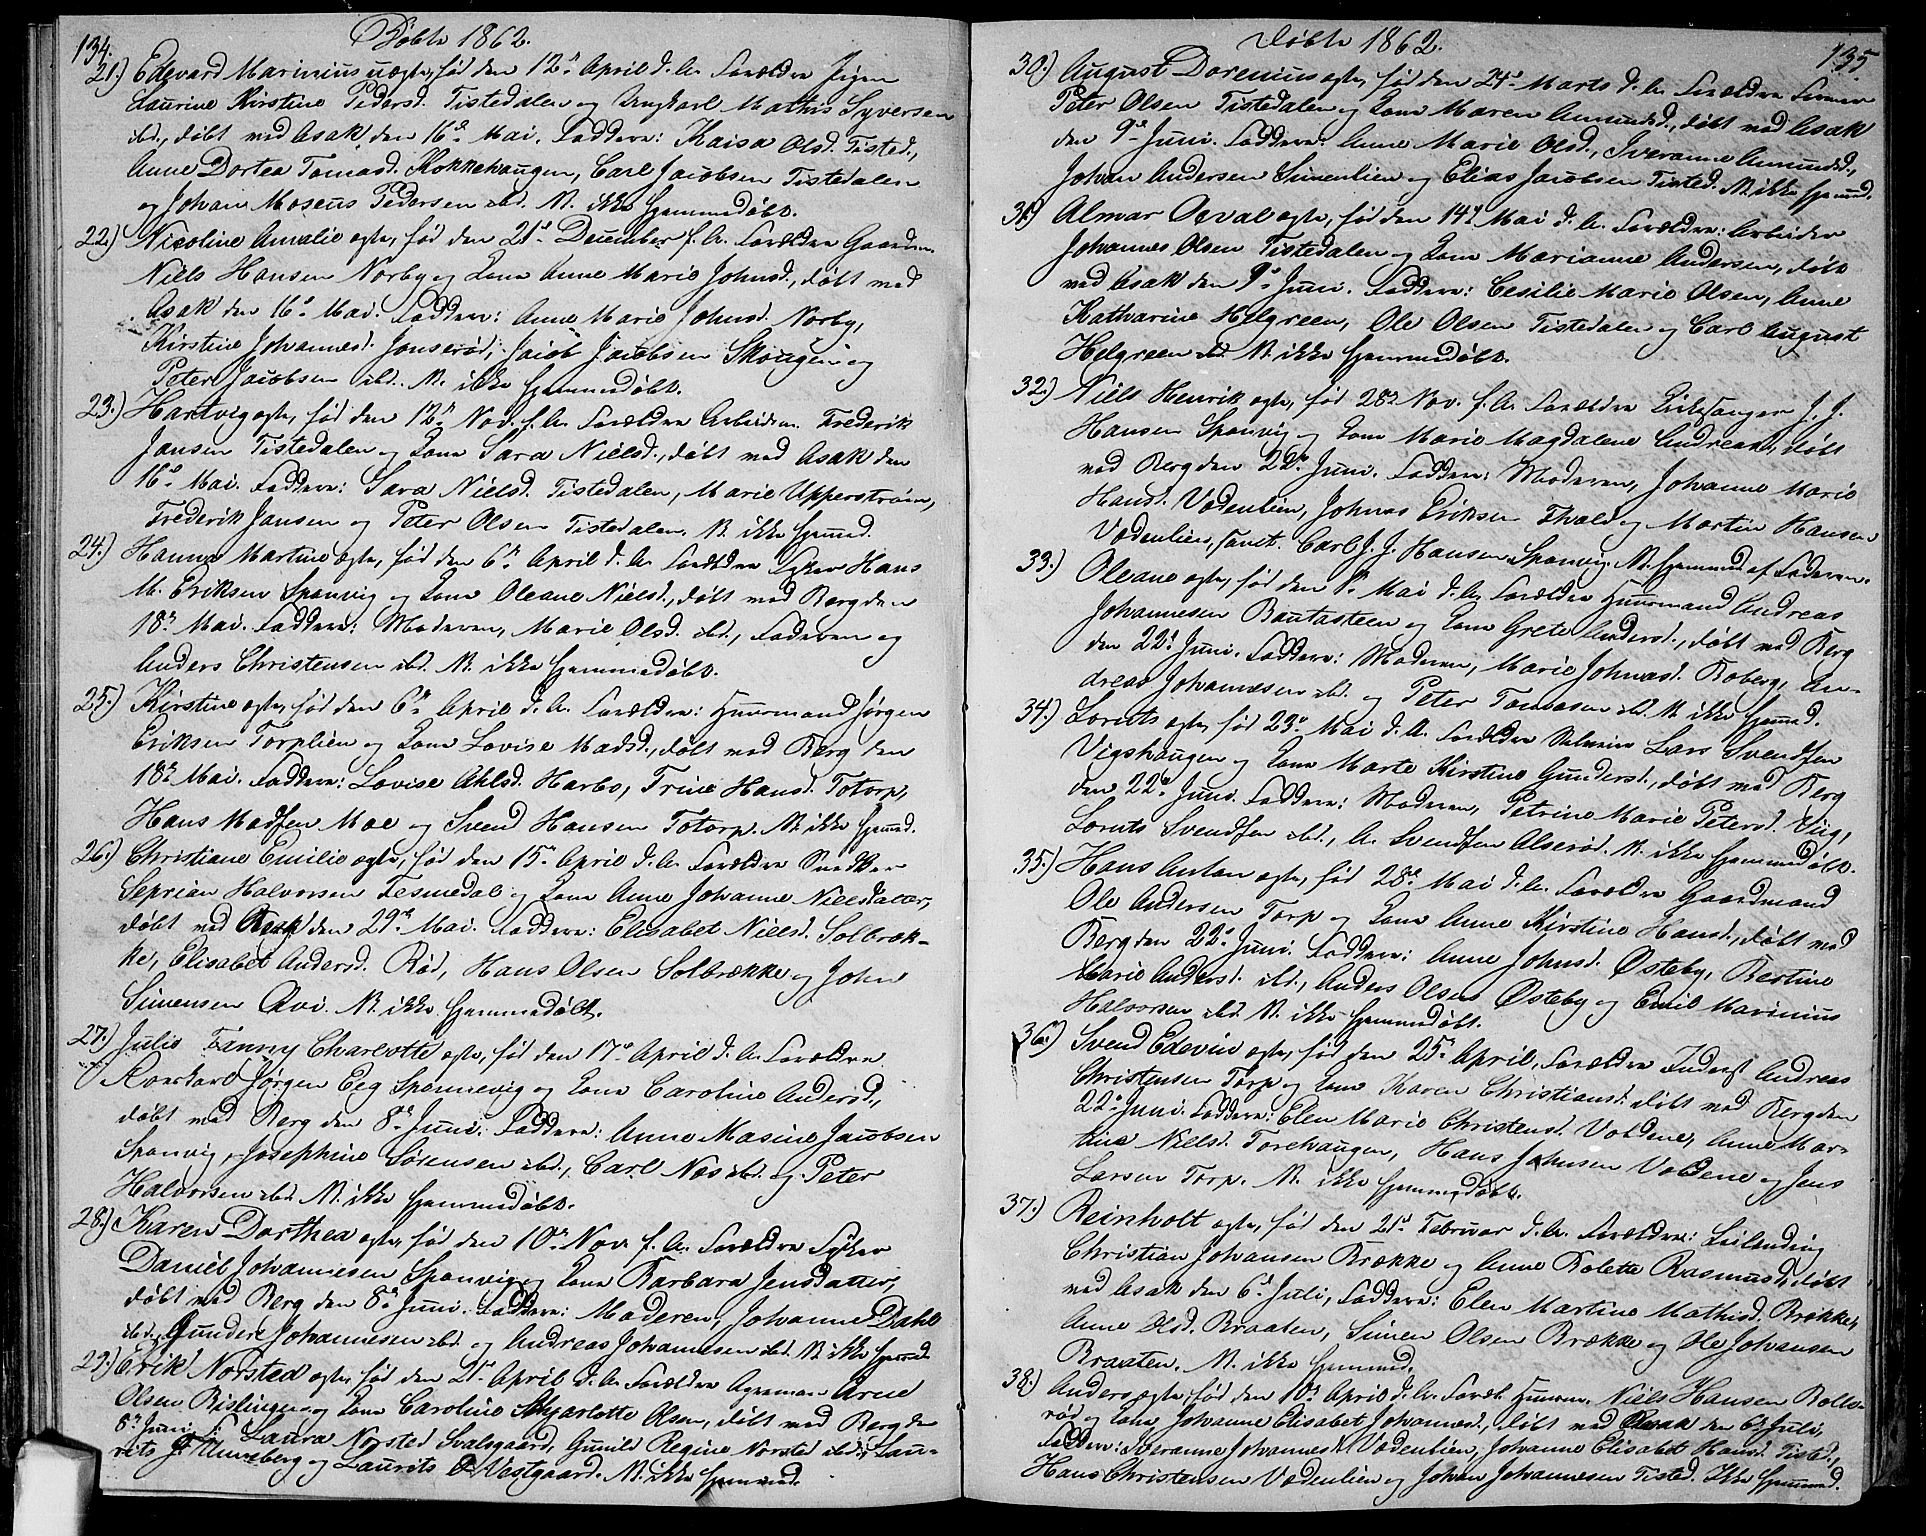 134.
Døbte 1862.
21.) Edevard Marinius uægte, fød den 12te April d. A. Forældre Pigen
Laurine Kirstine Pedersd. Tistedalen og Ungkarl Mathis Syversen
ibd., døbt ved Asak den 16de Mai. Faddere: Kaisa Olsd. Tisted.,
Anne Dortea Tomasd. Kokkehaugen, Carl Jacobsen Tistedalen
og Johan Moseus Pedersen ibd. N. ikke hjemmedøbt.
22.) Nicoline Amalie ægte, fød den 21de December f. A. Forældre Gaardm.
Niels Hansen Norby og Kone Anne Marie Johnsd., døbt ved
Asak den 16de Mai. Faddere: Anne Marie Johnsd. Norby,
Kirstine Johannesd. Jonserød, Jacob Jacobsen Skougen og
Peter Jacobsen ibd. N. ikke hjemmedøbt.
23.) Hartvig ægte, fød den 12te Nov. f. A. Forældre Arbeidsm. Frederik
Jansen Tistedalen og Kone Sara Nielsd., døbt ved Asak den
16de Mai. Faddere: Sara Nielsd. Tistedalen, Marie Upperstrøm,
Frederik Jansen og Peter Olsen Tistedalen. N. ikke hjemmd.
24.) Hanna Martine ægte, fød den 6te April d. A. Forældre Hans
M. Eriksen Sponvig og Kone Oleane Nielsd., døbt ved Berg den
18de Mai. Faddere: Moderen, Marie Olsd. ibd., Faderen og
Anders Christensen ibd. N. ikke hjemmedøbt.
25.) Kirstine ægte, fød den 6te April d. A. Forældre: Huusmand Jørgen
Eriksen Torplien og Kone Lovise Madsd., døbt ved Berg den
18de Mai. Faddere: Lovise Ahlsd. Harbo, Trine Hansd. Totorp,
Hans Madsen Moe og Svend Hansen Totorp. N. ikke hjemmd.
26.) Christiane Emilie ægte, fød den 15de April d. A. Forældre Snedker
Seprian Halvorsen Tesmedal og Kone Anne Johanne Nielsdatter,
døbt ved Asak den 29de Mai. Faddere: Elisabet Nielsd. Solbræk-
ke, Elisabet Andersd. Rød, Hans Olsen Solbrække og John
Simensen Avi. N. ikke hjemmedøbt.
27.) Julie Fanny Charlotte ægte, fød den 17de April d. A. Forældre
Jørgen Eeg Sponnevig og Kone Caroline Andersd.,
døbt ved Berg den 8de Juni. Faddere: Anne Masine Jacobsen
Sponvig, Josephine Sørensen ibd., Carl Næs ibd. og Peter
Halvorsen ibd. N. ikke hjemmedøbt.
28.) Karen Dorthea ægte, fød den 10de Nov. f. A. Forældre
Daniel Johannesen Sponvig og Kone Barbara Jensdatter,
døbt ved Berg den 8de Juni. Faddere: Moderen, Johanne Dahl
ibd., Gunder Johannesen ibd. og Andreas Johannesen ibd. N. ikke hjemmd.
29.) Erik Norsted ægte, fød den 21de April d. A. Forældre Arne
Olsen Rislingen og Kone Caroline Charlotte Olsen, døbt ved Berg den
8de Juni. F.: Laura Norsted Svalsgaard, Gunild Regine Norsted ibd., Lau-
rits J. Thuneberg og Laurits O. Vestgaard. N. ikke hjemmd.
Døbte 1862.
135
30.) August Dorenius ægte, fød den 24de Marts d. A. Forældre
Peter Olsen Tistedalen og Kone Maren Amundsd., døbt ved Asak
den 9de Juni. Faddere: Anne Marie Olsd., Iveranne Amundsd.,
Johan Andersen Simenlien og Elias Jacobsen Tisted. N. ikke hjemmd.
31.) Almar Osval ægte, fød den 14de Mai d. A. Forældre: Arbeider
Johannes Olsen Tistedalen og Kone Marianne Andersen, døbt
ved Asak den 9de Juni. Faddere: Cesilie Marie Olsen, Anne
Katharine Helgreen, Ole Olsen Tistedalen og Carl August
Helgreen ibd. N. ikke hjemmedøbt.
32.) Niels Henrik ægte, fød 28de Nov. f. A. Forældre Kirkesanger J. J.
Hansen Sponvig og Kone Marie Magdalene Andreasd., døbt
ved Berg den 22de Juni. Faddere: Moderen, Johanne Marie
Hansd. Vødenlien, Johnas Eriksen og Martin Hansen
Vødenlien, samt Carl J. J. Hansen Sponvig. N. hjemmd. af Faderen.
33.) Oleane ægte, fød den 1ste Mai d. A. Forældre Huusmand Andreas
Johannesen Bautasteen og Kone Grete Andersd., døbt ved Berg
den 22de Juni. Faddere: Moderen, Marie Johnasd. Boberg, An-
dreas Johannesen ibd. og Peter Tomasen ibd. N. ikke hjemmd.
34.) Lornts ægte, fød 23de Mai d. A. Forældre Lars Svendsen
Vigshaugen og Kone Marte Kirstine Gundersd., døbt ved Berg
den 22de Juni. Faddere: Moderen, Petrine Marie Petersd. Viig,
Lornts Svendsen ibd., A. Svendsen Alserød. N. ikke hjemmedøbt.
35.) Hans Anton ægte, fød 28de Mai d. A. Forældre Gaardmand
Ole Andersen Torp og Kone Anne Kirstine Hansd., døbt ved
Berg den 22de Juni. Faddere: Anne Johnsd. Østeby, Bertine
Marie Andersd. ibd., Anders Olsen Østeby og Emil Marinius
Halvorsen ibd. N. ikke hjemmedøbt.
36.) Svend Edevin ægte, fød den 25de April, Forældre Inderst Andreas
Christensen Torp og Kone Karen Christiansd. døbt ved Berg den
22de Juni. Faddere: Elen Marie Christensd. Voldene, Anne Mar-
tine Nielsd. Torehaugen, Hans Johnsen Voldene og Jens
Larsen Torp. N. ikke hjemmedøbt.
37.) Reinholt ægte, fød den 21de Februar d. A. Forældre: Leilænding
Christian Johansen Brække og Anne Bolette Rasmusd., døbt
ved Asak den 6te Juli, Faddere: Elen Martine Mathisd. Brække,
Anne Olsd. Braaten, Simen Olsen Brække og Ole Johansen
Braaten. N. ikke hjemmd.
38.) Anders ægte, fød den 10de April d. A. Foræld. Huusm. Niels Hansen Bolle-
rød og Kone Johanne Elisabet Johannesd., døbt ved Asak den 6te Juli,
Faddere: Iveranne Johannesd. Vødenlien, Johanne Elisabet Hansd. Tisted.,
Hans Christensen Vødenlien og Johan Johannesen Tisted. Ikke hjemmd.